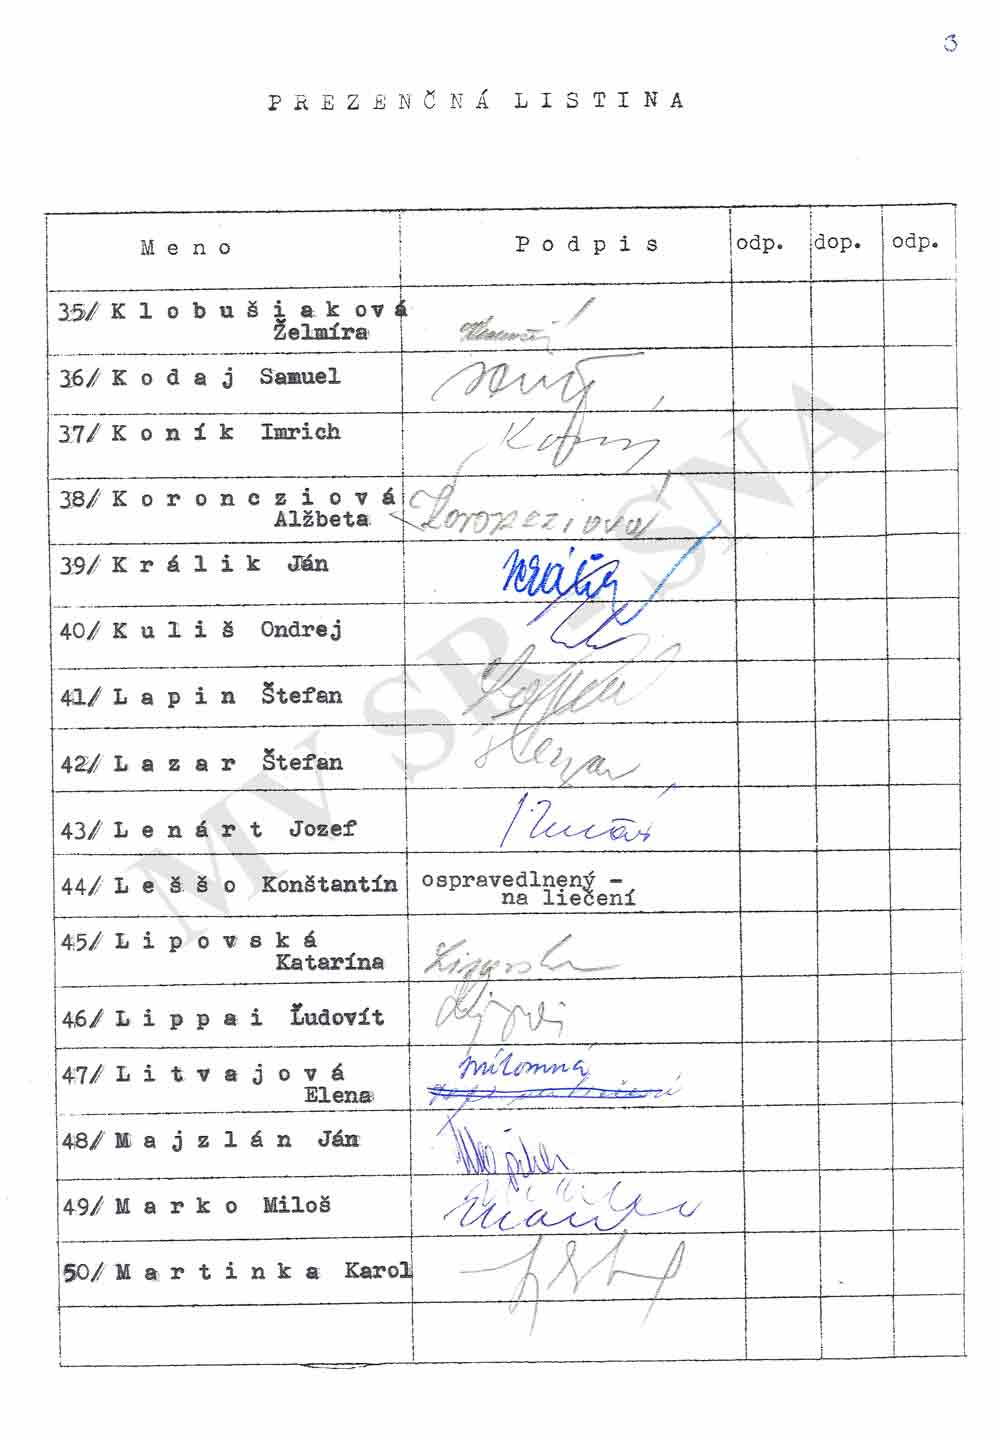 3
PREZENČNÁ LISTINA
Meno Podpis odp. dop. odp.
35/ Klobušiaková
Želmíra
36/ Kodaj Samuel
37/ Koník Imrich
38/ Koroncziová
Alžbeta
39/ Králik Ján
40/ Kuliš Ondrej
41/ Lapin Štefan
42/ Lazar Štefan
43/ Lenárt Jozef
44/ Leššo Konštantín ospravedlnený –
na liečení
45/ Lipovská
Katarína
46/ Lippai Ľudovít
47/ Litvajová prítomná
Elena
48/ Majzlán Ján
49/ Marko Miloš
50/ Martinka Karol
MV SR - SNA